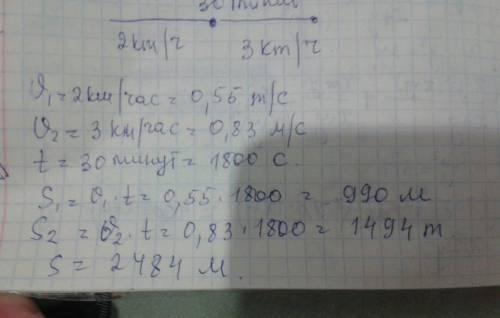 30 минут
2км/ч 3км/ч
ϑ₁ = 2км/час = 0,55 м/с
ϑ₂ = 3 км/час = 0,83 м/с
t = 30 минут = 1800 с.
S₁ = ϑ₁ · t = 0,55 · 1800 = 990 м
S₂ = ϑ₂ · t = 0,83 · 1800 = 1494 м
S = 2484 м.